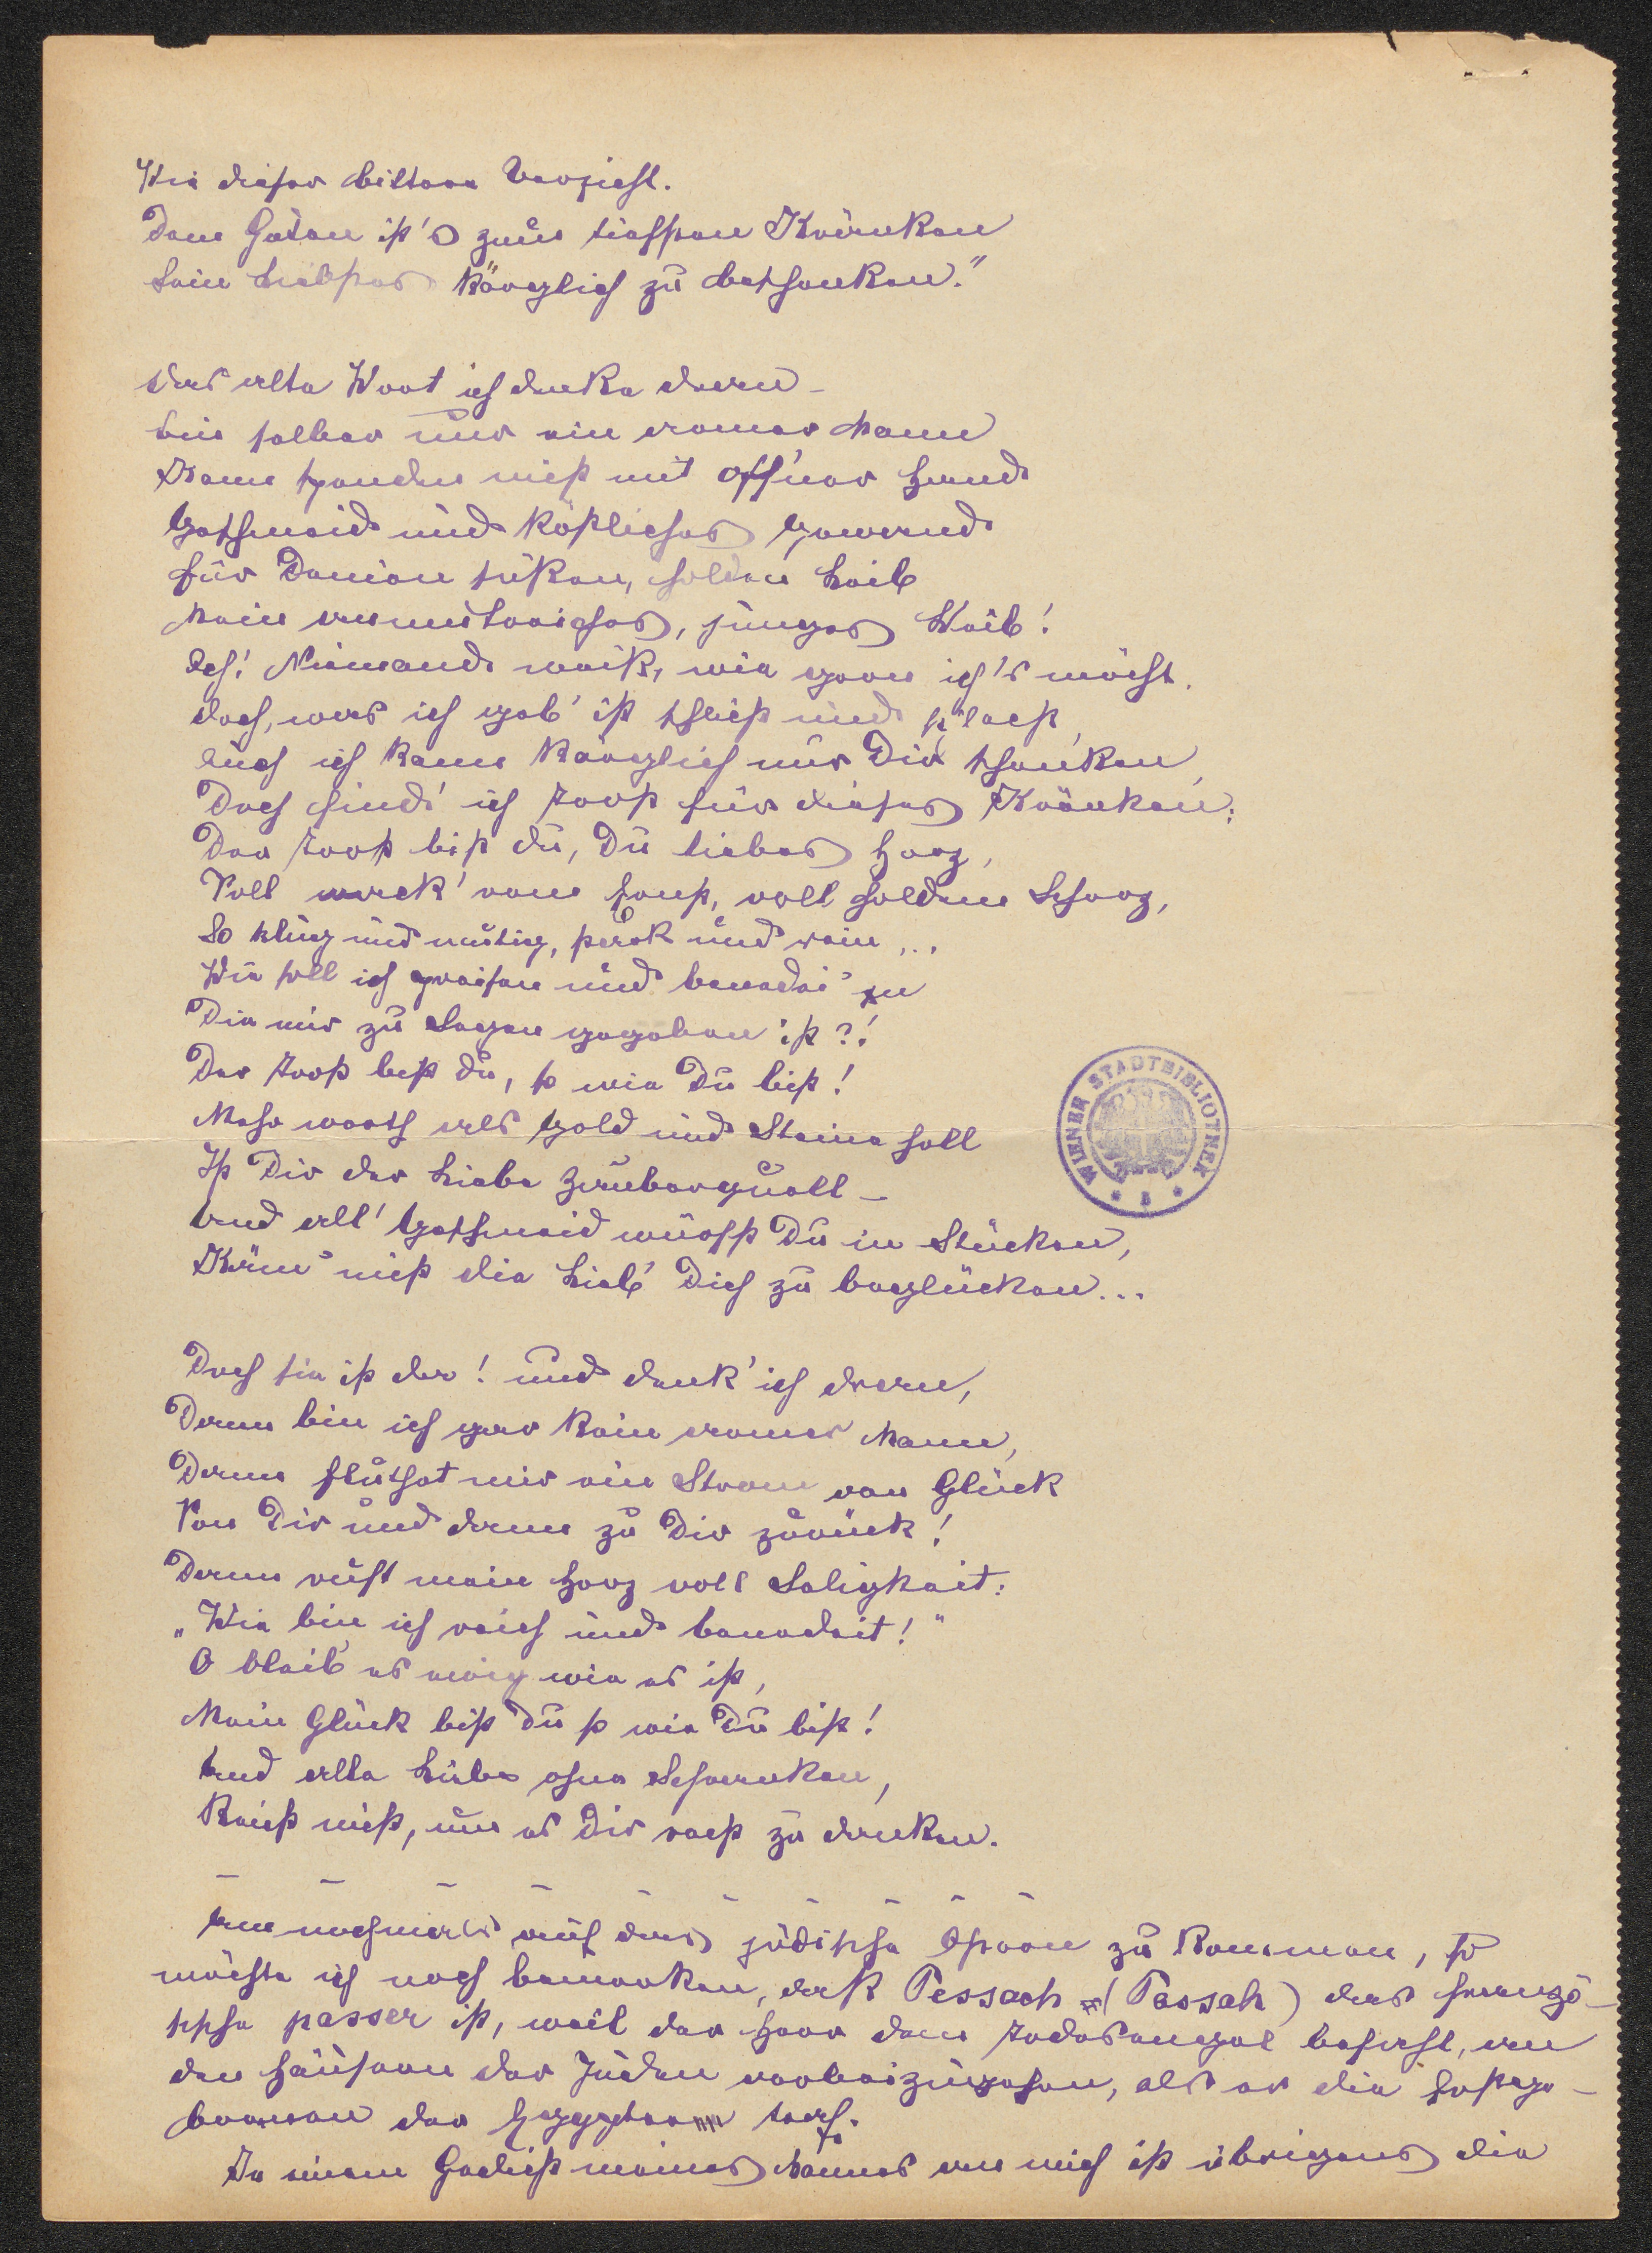 Wie dieser bittere Verzicht.
Dem Guten ist's zum tiefsten Kränken
Sein Liebstes kärglich zu beschenken."
Das alte Wort ich denke daran –
bin selber nur ein armer Mann
Kann spenden nicht mit off'ner Hand
Geschmeid und köstliches Gewand
für Deinen süßen, holden Leib
Mein anmutreiches, junges Weib!
Ach! Niemand weiß, wie gern ich's möcht.
doch, was ich geb' ist schlicht und schlecht,
auch ich kann kärglich nur Dir schenken,
Doch find' ich Trost für dieses Kränken:
Der Trost bist du, Du liebes Herz,
Voll wack'rem Ernst, voll holdem Scherz,
So klug und mutig, stark und rein...
Wie soll ich preisen und benedei'n
Die mir zu Segen gegeben ist?!
Der Trost bist du, so wie Du bist!
Mehr werth als Gold und Steine soll
Ist Dir der Liebe Zauberquell –
Und all' Geschmeid würfst Du in Stücken,
Käm' nicht die Lieb' Dich zu beglücken...
Doch sie ist da! und denk' ich daran,
Dann bin ich gar kein armer Mann,
Dann fluthet mir ein Strom von Glück
Von Dir und dann zu Dir zurück!
Dann ruft mein Herz voll Seligkeit:
„Wie bin ich reich und benedeit!"
O bleib' es ewig wie es ist,
Mein Glück bist Du so wie Du bist!
Und alle Liebe ohne Schranken,
Reicht nicht, um es Dir recht zu danken.
– – – – – – – – – –
Um nochmals auf das jüdische Ostern zu kommen, so
möchte ich noch bemerken, daß Pessach (Passah) das franzö-
sische passer ist, weil der Herr dem Todesengel befiehlt, an
den Häusern der Juden vorbeizugehen, als er die Erstge-
borenen der Egypter traf.
In einem Gedicht meines Mannes an mich ist übrigens die
WIENER STADTBIBLIOTHEK